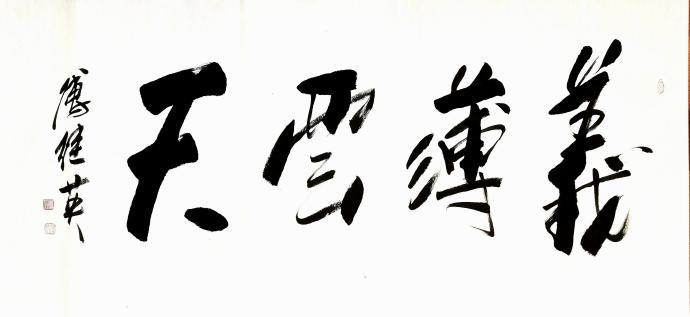 義薄雲天
傅继英